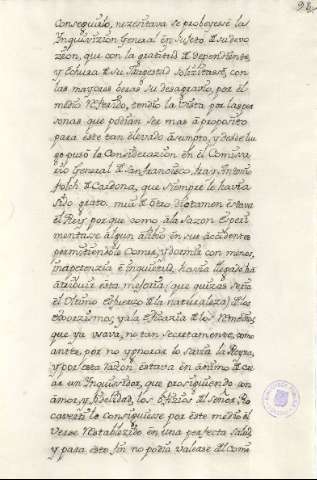 Conseguirlo, nezesitava se proveyese la
Inquisizion General en sujeto de su devo
zion, que con la gratitud de dependiente,
y echura de su Magestad solizitase, con
las mayores beras su desagravio, por el
medio referido, tendio la vista por las per
sonas que podian ser mas à proposito
para este tan elevado asumpto, y desde lu
go puso la Consideracion en el Comisa
rio General de San francisco, fray Antonio
folch de Cardona, que siempre le havia
sido grato, mui de otro dictamen estava
el Rey, por que como à la sazon Experi
mentase algun alibio en sus accidentes
permitiendole Comer, y dormir con menos
inapetenzia, è Inquietud, havia llegado ha
atribuir esta mejoria (que quizas seria
el Ultimo esfuerzo de la naturaleza) à los
exorzismos, y a la eficazia de los remedios
que ya usava, no tan secretamente, como
antes, por no ygnorar lo saria la Reyna,
y por esta razon, estava en animo de cre
ar un Inquisidor, que prosiguiendo con
amor, y fidelidad, los ofizios del señor Ro
caverti lo consiguiese por este medio el
verse restablezido en una perfecta salud,
y para este fin no podia valerse del Comi